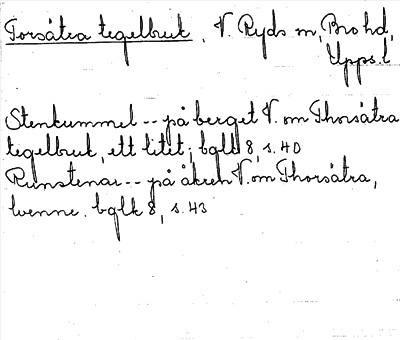 Torsätra tegelbruk. V. Ryds sn, Bro hd,
Upps. l
Stenkummel -- på berget V. om Thorsätra
tegelbruk, ett litet; bglk 8, s. 40
Runstenar -- på åkren V. om Thorsätra,
tvenne. bglk 8, s. 43